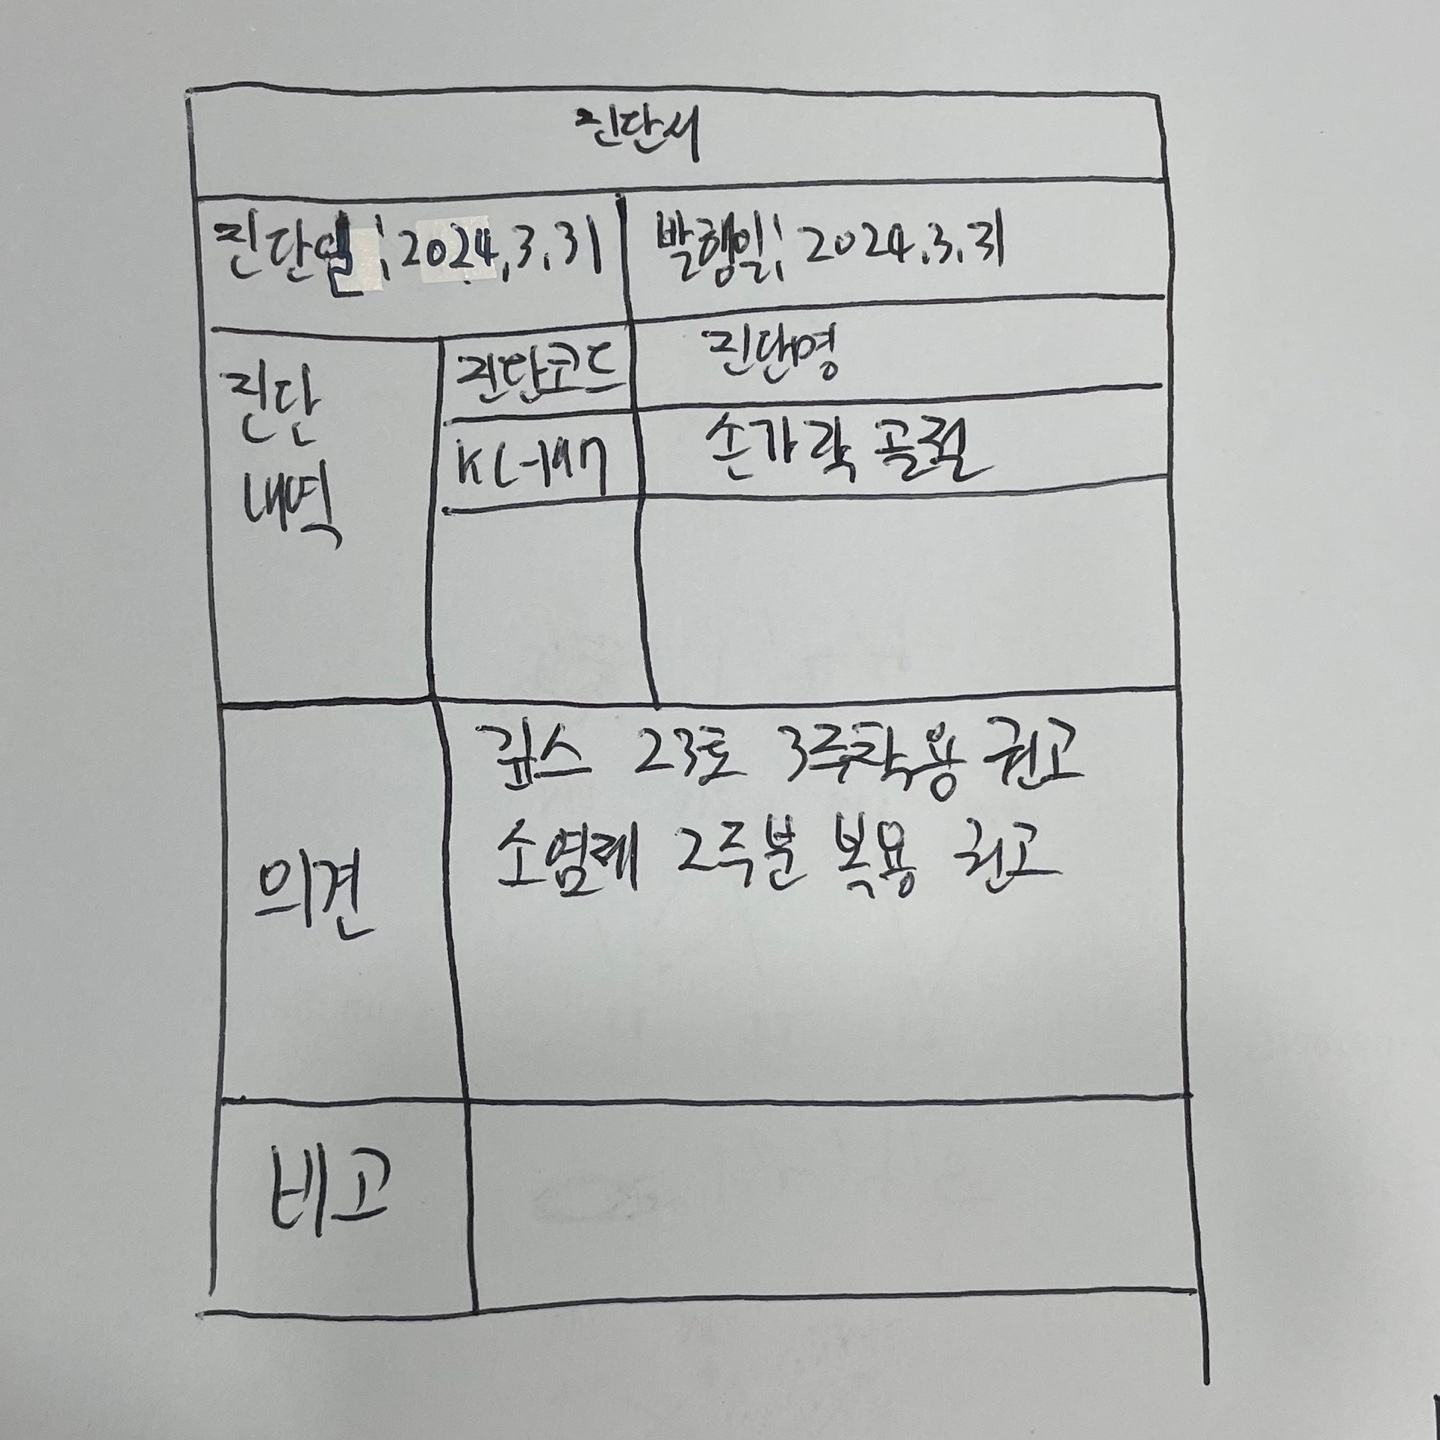 진단서
진단일: 2024.3.31 발행일: 2024.3.31
진단
내역
진단코드 진단명
손가락 골절
의견
깁스 23토 3주착용 권고
소염제 2주분 복용 권고
비고